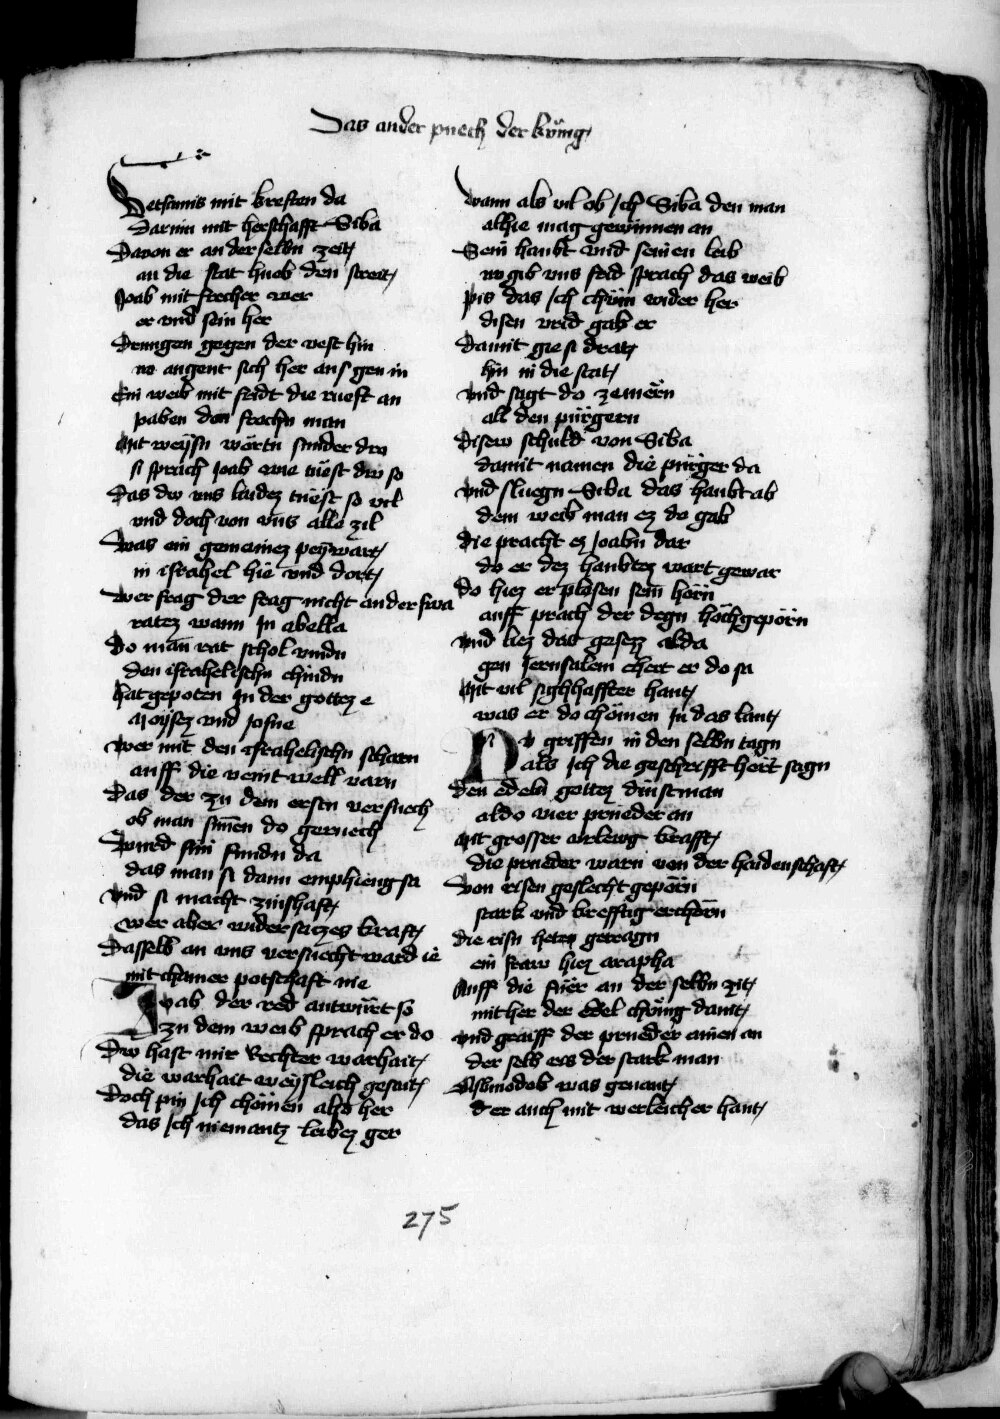 Das ander puech der kunig
Betsamis mit kresten da
darinn mit herschafft Siba
Davon er an der selbn zeit
an die stat hueb den streit
Joab mit frecher wer
er vnd sein her
Drungen gegen der vest hin
no angent sich her aus gen in
Ein weib mit stadt die rueft an
paben den frechn man
mit weysn wörtn sunder dro
si sprach Joab wie tuest dw so
Das dw vns laidez tuest so vil
vnd doch von vns alle zil
Was ein gemeinez peywart
in israhel hie vnd dort
wer frag der frag nicht anderswa
ratez wann in abella
do man rat schol vindn
den israhelischn chindn
hat gepoten in der gottez e
Moysez vnd Josue
wer mit den israhelischn scharn
auff die veint well varn
Das der zu dem erstn versuech
ob man sünen do geruech
Wurd sün fundn da
das man si dann emphieng sa
vnd si macht zinshaft
wer aber widersaczes kraft
Dasselb an vns versuecht ward ie
mit chainer potschaft nie
Joab der red antwürt so
zu dem weib sprach er do
Dw hast mir Rechter warhait
die warhait weysleich gesait
Doch pin ich chömen also her
das ich niemantz leibez ger
wann als vil ob ich Siba den man
alhie mag gewinnen an
Sein haubt vnd seinen leib
no gib vns frid sprach das weib
pis das ich chüm wider her
disen vrid gab er
Damit gie si drat
hin in die stat
vnd sagt do ze mern
all den pürgern
disew schuld von Siba
damit namen die pürger da
vnd sluegn Siba das haubt ab
dem weib man ez do gab
die pracht ez Joabn dar
do er dez haubtez wart gewar
do hiez er plasen sein hörn
auff prach der degn hochgeporn
vnd liez das gesezz alda
gen Jerusalem chert er do sa
mit vil sighhaffter hant
was er do chömen in das lant
Nv griffen in den selbn tagn
als ich die geschrifft hört sagn
den edeln gottez dinstman
aldo vier prueder an
mit grosser vrlewg krafft
die prueder warn von der haidenschaft
Von risen geslecht geporn
stark vnd krefftig erchorn
die risn hetn getragn
ein fraw hiez arapha
Auff die fuer an der selbn zit
mit her der edel chönig dauit
vnd graiff der prueder ainen an
der selb was der stark man
Asbmodob was genant
der auch mit werleicher hant
275